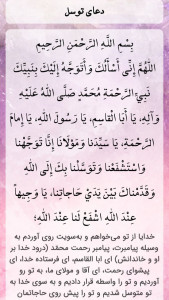 دعای توسل
بِسْمِ اللَّهِ الرَّحْمَنِ الرَّحِيمِ
اللَّهُمَّ إِنِّي أَسْأَلُكَ وَأَتَوَجَّهُ إِلَيْكَ بِنَبِيِّكَ
نَبِيِّ الرَّحْمَةِ مُحَمَّدٍ صَلَّى اللَّهُ عَلَيْهِ
وَآلِهِ، يَا أَبَا الْقَاسِمِ، يَا رَسُولَ اللَّهِ، يَا إِمَامَ
الرَّحْمَةِ، يَا سَيِّدَنَا وَمَوْلَانَا إِنَّا تَوَجَّهْنَا
وَاسْتَشْفَعْنَا وَتَوَسَّلْنَا بِكَ إِلَى اللَّهِ
وَقَدَّمْنَاكَ بَيْنَ يَدَيْ حَاجَاتِنَا، يَا وَجِيهاً
عِنْدَ اللَّهِ اشْفَعْ لَنا عِنْدَ اللَّهِ؛
خدایا از تو می‌خواهم و به‌سویت روی آوردم به
وسیله پیامبرت، پیامبر رحمت محمد (درود خدا بر
او و خاندانش) ای ابا القاسم، ای فرستاده خدا، ای
پیشوای رحمت، ای آقا و مولای ما، به تو رو
آوردیم و تو را واسطه قرار دادیم و به سوی خدا به
تو متوسل شدیم و تو را پیش روی حاجاتمان